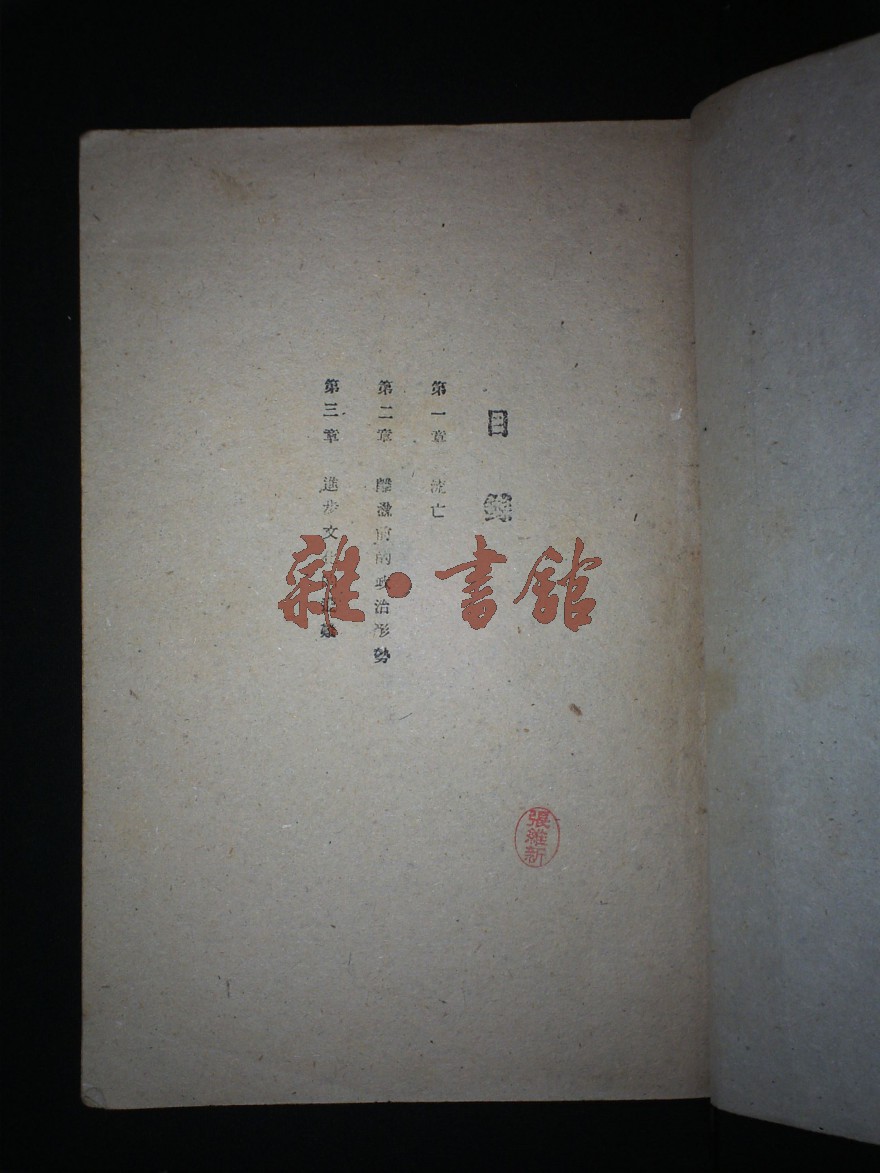 目錄
第一章 流亡
第二章 離渝前的政治形勢
第三章 進步文
雜·書館
張維新